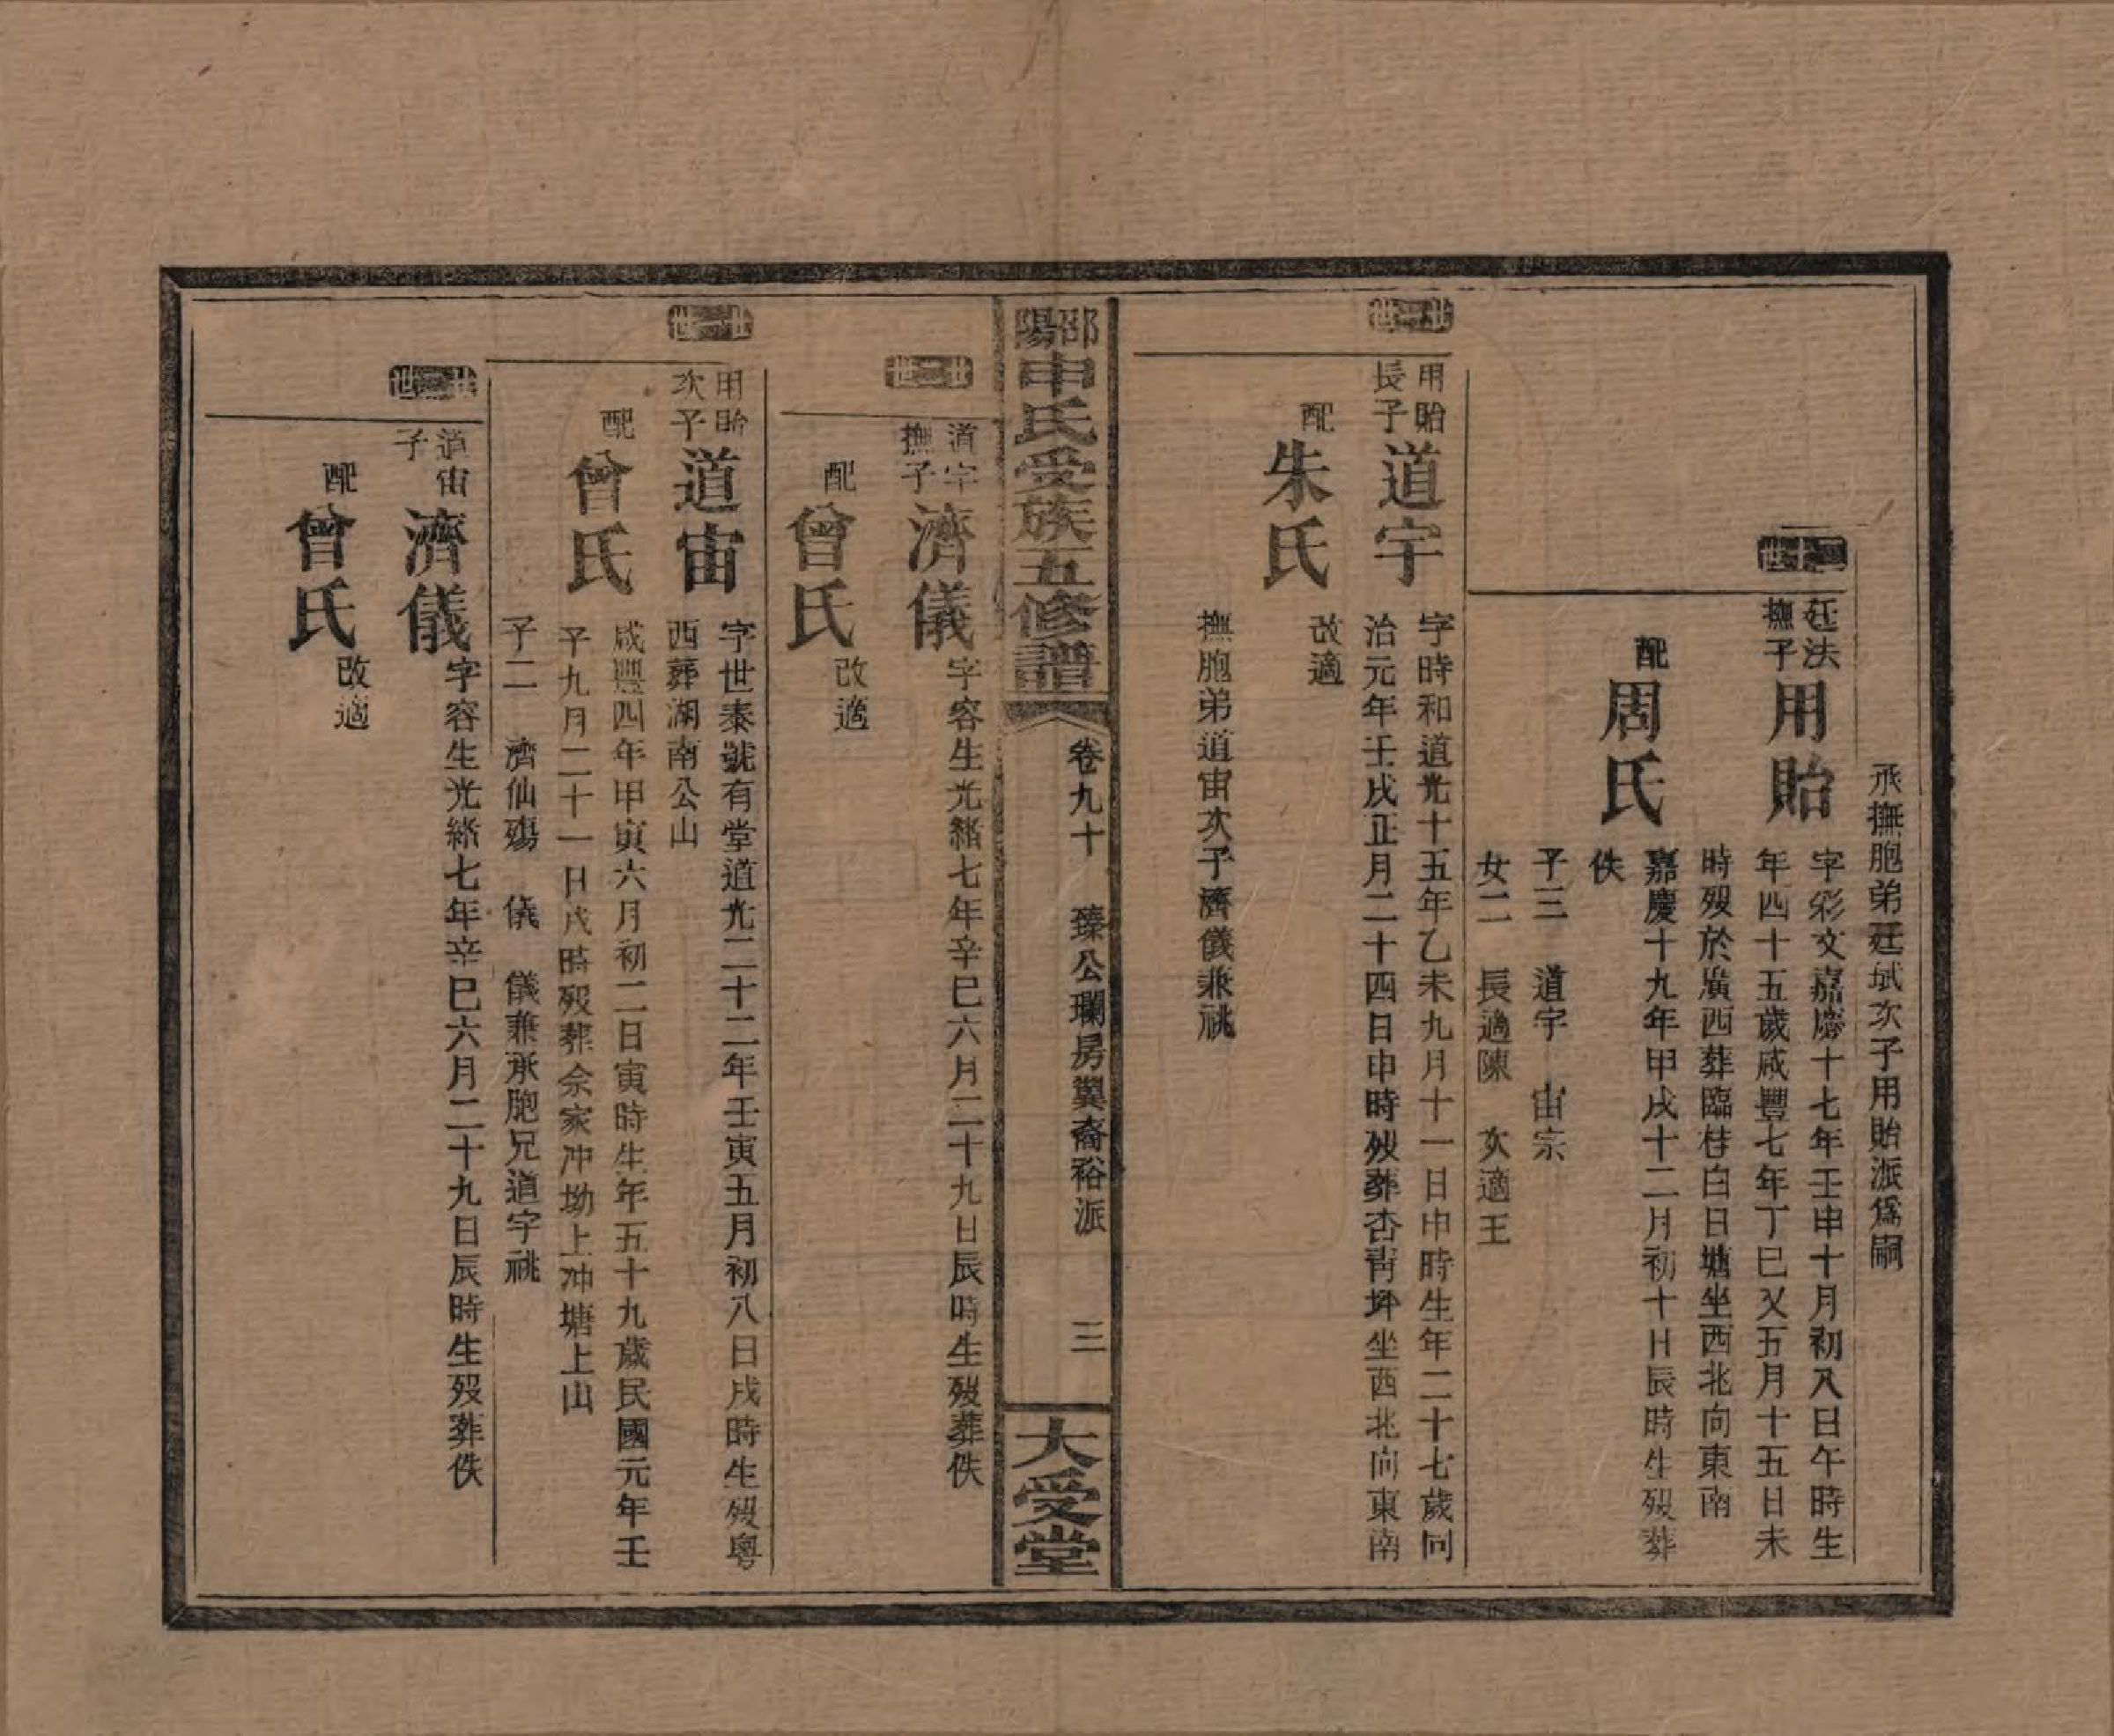 承撫胞弟廷斌次子用貽派爲嗣
二十世
廷法
撫子
用貽
字彩文嘉慶十七年壬申十月初八日午時生
年四十五歲咸豐七年丁巳又五月十五日未
時歿於廣西葬臨桂白日塘坐西北向東南
配
周氏
嘉慶十九年甲戌十二月初十日辰時生歿葬
佚
子三 道宇 宙宗
女二 長適陳 次適王
廿一世
用貽
長子
道宇
字時和道光十五年乙未九月十一日申時生年二十七歲同
治元年壬戌正月二十四日申時歿葬杏靑坪坐西北向東南
配
朱氏
改適
撫胞弟道宙次子濟儀兼祧
邵陽申氏受族五修譜
卷九十 臻公瓓房翼裔裕派 三
大受堂
廿二世
道宇
撫子
濟儀
字容生光緒七年辛巳六月二十九日辰時生歿葬佚
配
曾氏
改適
廿一世
用貽
次子
道宙
字世泰號有堂道光二十二年壬寅五月初八日戌時生歿粤
西葬湖南公山
配
曾氏
咸豐四年甲寅六月初二日寅時生年五十九歲民國元年壬
子九月二十一日戌時歿葬佘家冲坳上冲塘上山
子二 濟仙殤 儀 儀兼承胞兄道宇祧
廿二世
道宙
子
濟儀
字容生光緒七年辛巳六月二十九日辰時生歿葬佚
配
曾氏
改適